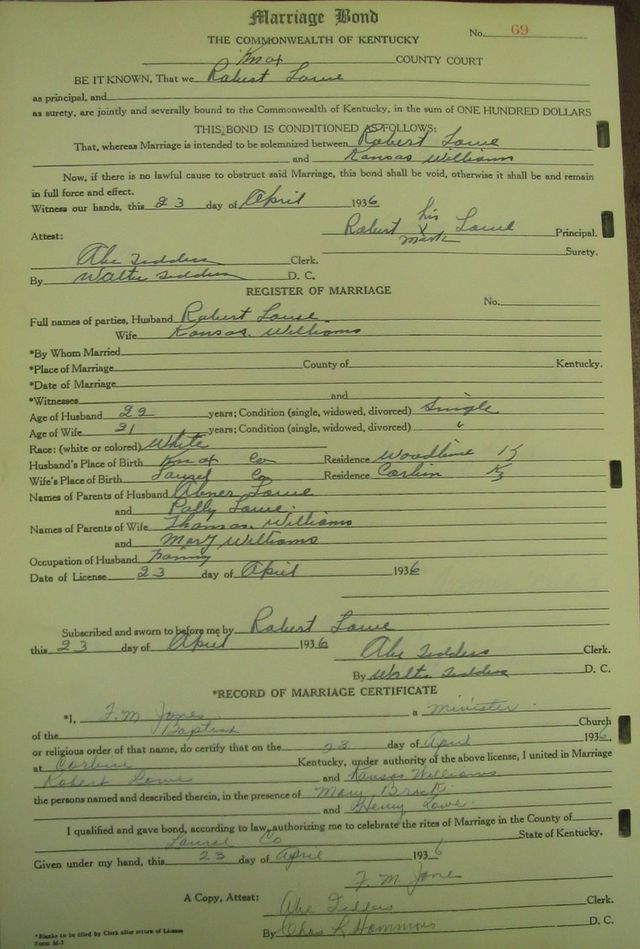 Marriage Bond
No. 69
THE COMMONWEALTH OF KENTUCKY
Knox COUNTY COURT
BE IT KNOWN, That we Robert Lowe
as principal, and
as surety, are jointly and severally bound to the Commonwealth of Kentucky, in the sum of ONE HUNDRED DOLLARS
THIS BOND IS CONDITIONED AS FOLLOWS:
That, whereas Marriage is intended to be solemnized between Robert Lowe
and Kansas Williams
Now, if there is no lawful cause to obstruct said Marriage, this bond shall be void, otherwise it shall be and remain
in full force and effect.
Witness our hands, this 23 day of April 1936
Robert his X mark Lowe Principal.
Attest:
Surety.
Abe Tedders Clerk.
By Walter Tedders D. C.
REGISTER OF MARRIAGE
No.
Full names of parties, Husband Robert Lowe
Wife Kansas Williams
*By Whom Married
*Place of Marriage County of Kentucky.
*Date of Marriage
*Witnesses and
Age of Husband 22 years; Condition (single, widowed, divorced) Single
Age of Wife 21 years; Condition (single, widowed, divorced) "
Race: (white or colored) White
Husband's Place of Birth Knox Co Residence Woodbine Ky
Wife's Place of Birth Laurel Co Residence Corbin Ky
Names of Parents of Husband Abner Lowe
and Polly Lowe
Names of Parents of Wife Thomas Williams
and Mary Williams
Occupation of Husband
Date of License 23 day of April 1936
Subscribed and sworn to before me by Robert Lowe
this 23 day of April 1936
Abe Tedders Clerk.
By Walter Tedders D. C.
*RECORD OF MARRIAGE CERTIFICATE
*I, F. M. Jones a Minister
of the Baptist Church
or religious order of that name, do certify that on the 23 day of April 1936
at Corbin Kentucky, under authority of the above license, I united in Marriage
Robert Lowe and Kansas Williams
the persons named and described therein, in the presence of Mary Brock
and Henry Lowe
I qualified and gave bond, according to law, authorizing me to celebrate the rites of Marriage in the County of
Laurel Co State of Kentucky.
Given under my hand, this 23 day of April 1936
F. M. Jone
A Copy, Attest: Abe Tedders Clerk.
By Chas R Hammons D. C.
*Blanks to be filled by Clerk after return of License
Form M-7